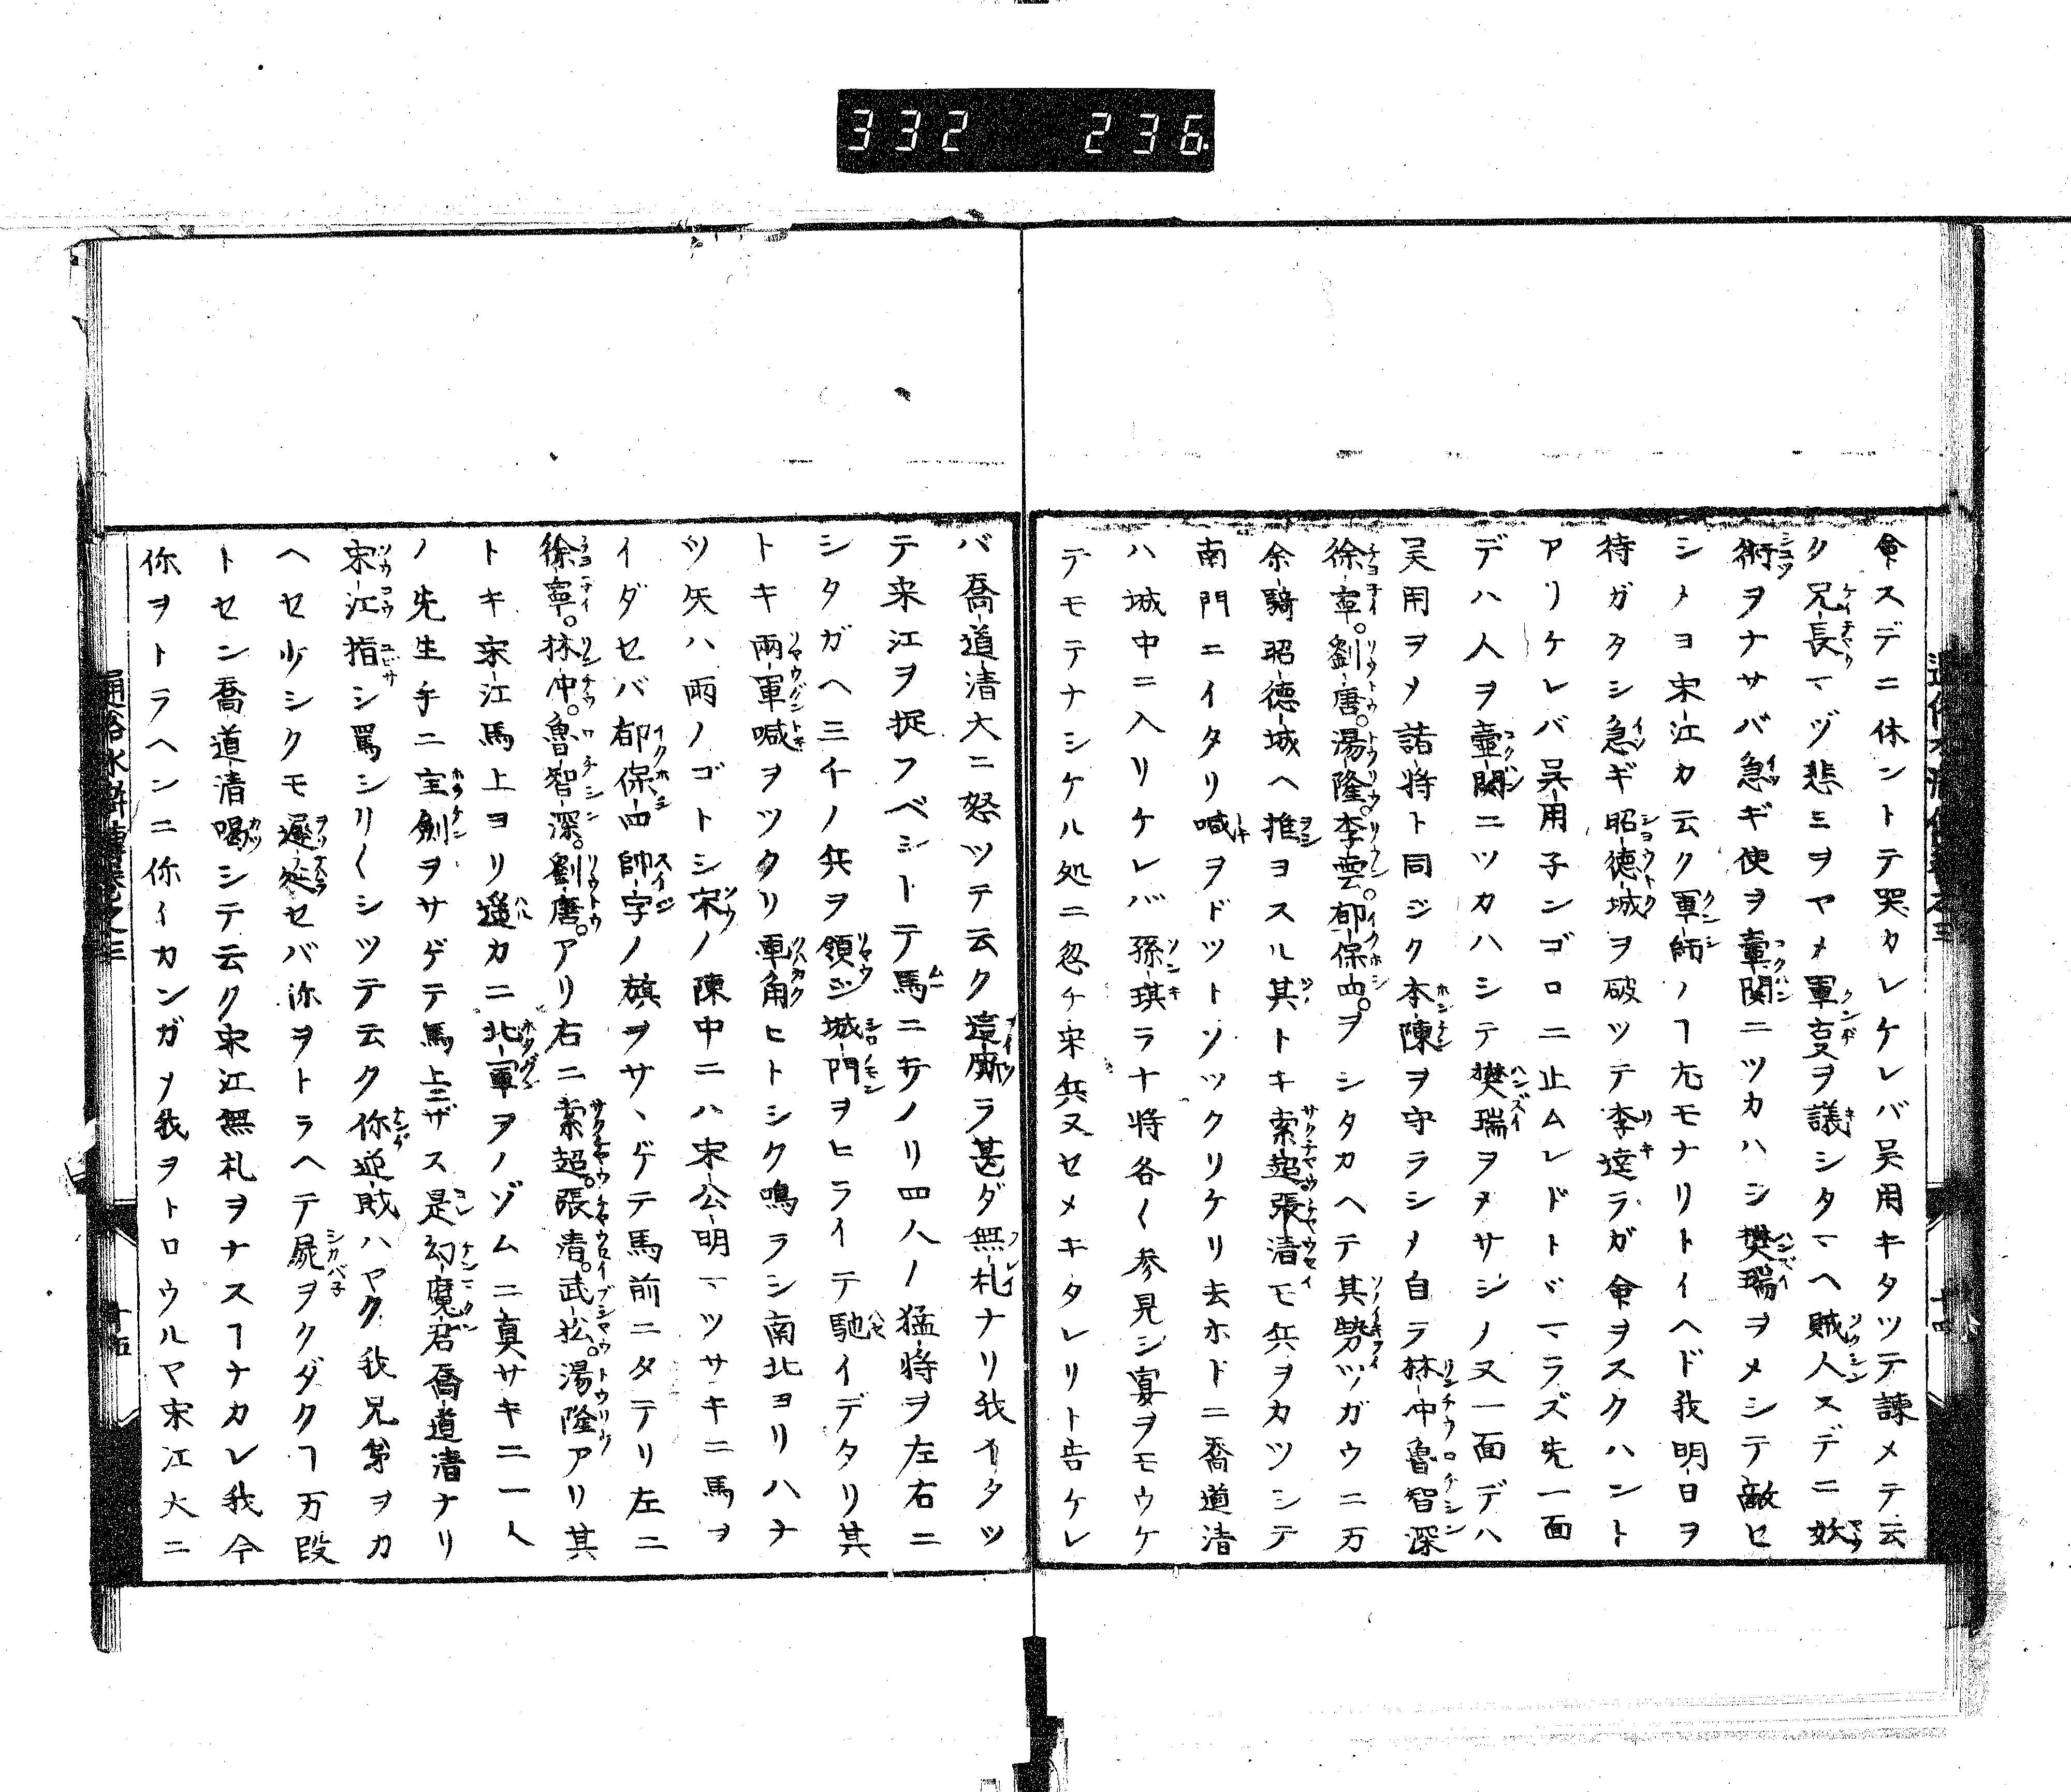 332 236
命スデニ休ントテ哭カレケレバ呉用キタツテ諌メテ云
ク兄長マヅ悲ミヲヤメ軍叓ヲ議シタマヘ賊人スデニ妖
術ヲナサバ急ギ使ヲ壷関ニツカハシ樊瑞ヲメシテ敵セ
シメヨ宋江カ云ク軍師ノヿ尤モナリトイヘド我明日ヲ
待ガタシ急ギ昭徳城ヲ破ツテ李逵ラガ命ヲスクハント
アリケレバ呉用子ンゴロニ止ムレドトヾマラズ先一面
デハ人ヲ壷関ニツカハシテ樊瑞ヲメサシメ又一面デハ
呉用ヲメ諸将ト同ジク本陳ヲ守ラシメ自ラ林冲魯智深
徐寧。劉唐。湯隆。李雲。郁保四。ヲシタカヘテ其勢ツガウ二万
余騎昭徳城ヘ推ヨスル其トキ索超張清モ兵ヲカツシテ
南門ニイタリ喊ヲドツトソツクリケリ去ホドニ喬道清
ハ城中ニ入リケレバ孫琪ラナ将各〱参見シ宴ヲモウケ
テモテナシケル処ニ忽チ宋兵又セメキタレリト告ケレ
バ喬道清大ニ怒ツテ云ク這廝ラ甚ダ無礼ナリ我イタツ
テ来江ヲ捉フベシトテ馬ニ夯ノリ四人ノ猛将ヲ左右ニ
シタガヘ三千ノ兵ヲ領ジ城門ヲヒライテ馳イデタリ其
トキ兩軍喊ヲツクリ軍角ヒトシク鳴ラシ南北ヨリハナ
ツ矢ハ雨ノゴトシ宋ノ陳中ニハ宋公明マツサキニ馬ヲ
イダセバ郁保四帥字ノ旗ヲサヽゲテ馬前ニタテリ左ニ
徐寧。林冲。魯智深。劉唐。アリ右ニ索超。張清。武松。湯隆アリ其
トキ宋江馬上ヨリ遥カニ北軍ヲノゾムニ真サキニ一人
ノ先生手ニ宝劍ヲサゲテ馬上ニザス是幻魔君喬道清ナリ
宋江指シ罵シリ〱シツテ云ク你逆賊ハヤク我兄弟ヲカ
ヘセ少シクモ遲延セバ你ヲトラヘテ屍ヲクダクヿ万段
トセン喬道清喝シテ云ク宋江無礼ヲナスヿナカレ我今
你ヲトラヘンニ你イカンガメ我ヲトロウルヤ宋江大ニ
通俗水滸傳巻之三